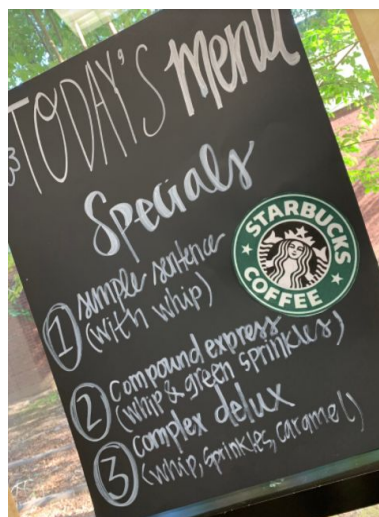 TODAY'S menu
Specials
STARBUCKS
COFFEE
1 simple sentence
(with whip)
2 compound express
(whip & green sprinkles)
3 complex delux
(whip, sprinkles, caramel)